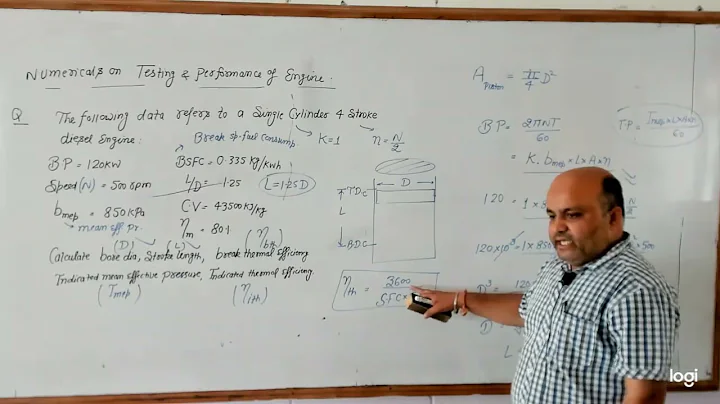 Numericals on Testing & Performance of Engine.
Q The following data refers to a Single Cylinder 4 Stroke
diesel Engine:
Break sp. fuel consump
K=1
n = N/2
BP = 120KW
BSFC = 0.335 kg/kwh
Speed (N) = 500 rpm
L/D = 1.25
L = 1.25D
bmep = 850 kPa
CV = 43500 KJ/kg
mean eff pr.
ηm = 80%
(D) (L) (ηbth)
Calculate bore dia, Stroke length, break thermal efficiency
Indicated mean effective pressure, Indicated thermal efficiency.
(Imep) (ηith)
TDC
D
L
BDC
ηith = 3600
SFC
A piston = π/4 D²
BP = 2πNT/60
IP =
60
= K. bmep × L × A × n
120 = 1 × 8
120×10³ = 1 × 850
500
D³ = 120
D =
L
logi